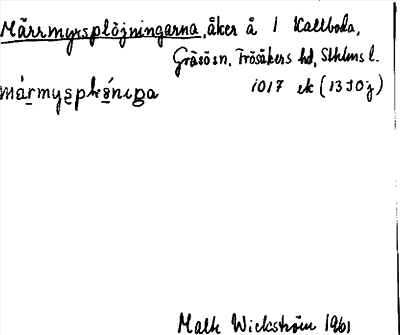 Märrmyrsplöjningarna, åker å 1 Kallboda,
Gräsö sn, Frösåkers hd, Sthlms l.
1017 ek (13J0j)
Malte Wickström 1961